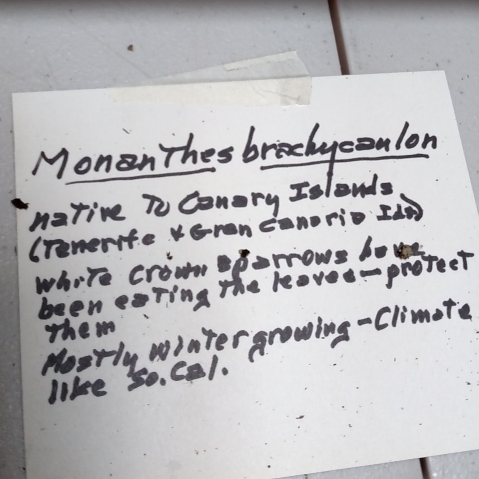 Monanthes brachycaulon
native To Canary Islands
(Tenerife & Gran Canaria Isls)
white crown sparrows have
been eating the leaves - protect
them
Mostly winter growing - Climate
like So. Cal.